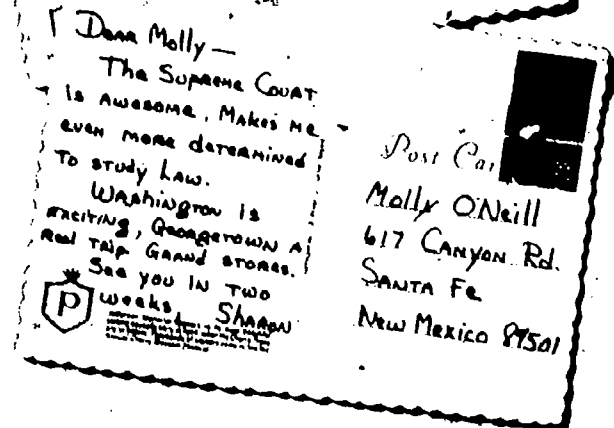 Dear Molly —
The Supreme Court
is awesome, makes me
even more determined
to study law.
Washington is
exciting, Georgetown a
real trip. Grand stores.
See you in two
weeks. Sharon
P
Post Car
Molly O'Neill
617 Canyon Rd.
Santa Fe
New Mexico 87501